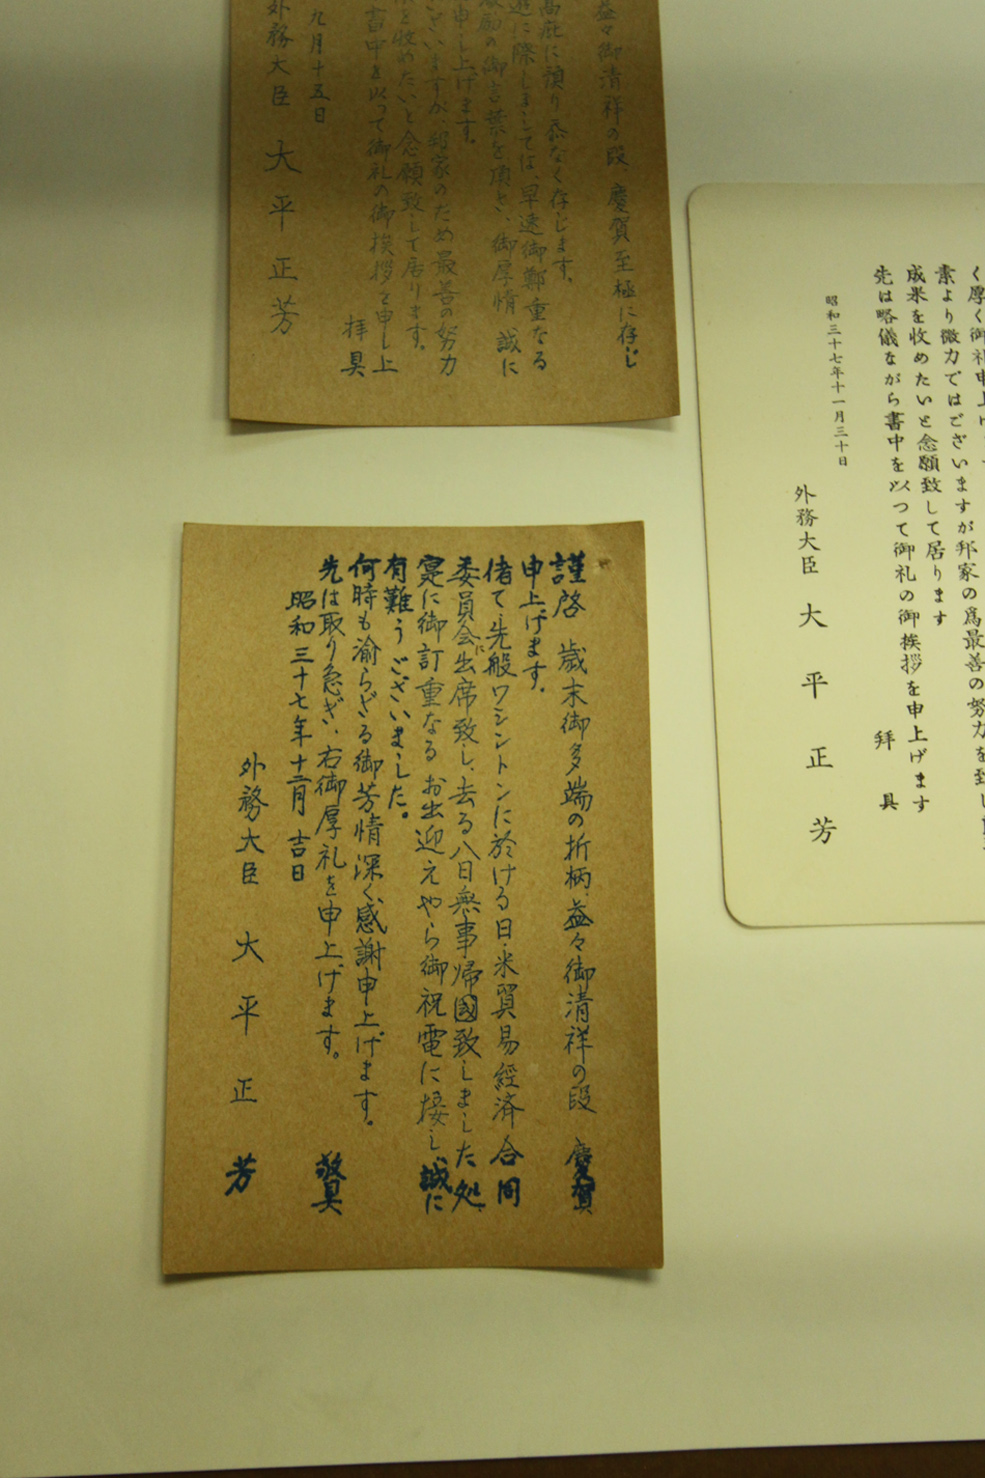 益々御清祥の段、慶賀至極に存じ
高庇に預り忝なく存じます。
に際しましては、早速御鄭重なる
激励の御言葉を頂き、御厚情誠に
申し上げます。
ございますが、邦家のため最善の努力
を収めたいと念願致して居ります。
書中を以つて御礼の御挨拶を申し上
拝具
九月十五日
外務大臣 大平正芳
く厚く御礼申上げ
素より微力ではございますが邦家の爲最善の努力を致し
成果を収めたいと念願致して居ります
先は略儀ながら書中を以つて御礼の御挨拶を申上げます
拜具
昭和三十七年十一月三十日
外務大臣 大平正芳
謹啓 歳末御多端の折柄、益々御清祥の段 慶賀
申上げます。
偖て、先般ワシントンに於ける日・米貿易経済合同
委員会に出席致し、去る八日無事帰國致しました処、
寔に御訂重なるお出迎えやら御祝電に接し、誠に
有難うございました。
何時も渝らざる御芳情深く感謝申上げます。
先は取り急ぎ、右御厚礼を申上げます。
敬具
昭和三十七年十二月吉日
外務大臣 大平正芳